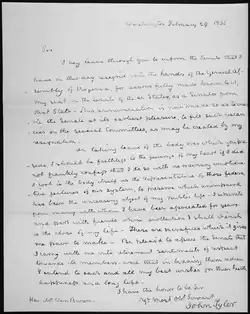 Washington February 29. 1836
Sir
I beg leave through you to inform the Senate that I
have on this day resigned into the hands of the General As-
sembly of Virginia, for reasons fully made known to it,
my seat in the Senate of the U. States, as a Senator from
that State. This communication is now made to
the Senate
resignation.
In taking leave of the body over which you pre-
side, I should be faithless to the feelings of my heart if I did
not frankly confess that I do so with no ordinary emotions
I look to the body itself as the Representative of those federa-
tive features of our system, to preserve which
has been the unceasing object of my Public life. I
many with whom I have been associated for years
and part with friends whose recollection I shall cherish
to the close of my life. These are sacrifices which it gives
me pain to make. Be pleased to assure the Senate that
I carry with me into retirement sentiments of respect
towards its members and that in bidding them adieu
I extend to each and all my best wishes for their health
happiness and long life.
I have the honor to be Sir
Yr most Obt Servant
Hon. M. Van Buren.
John Tyler